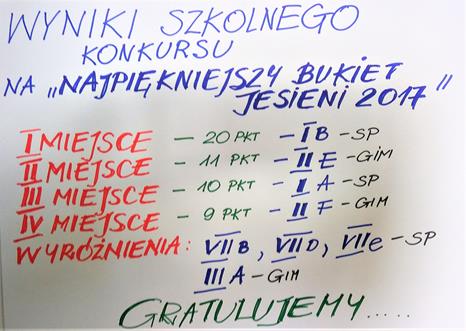 WYNIKI SZKOLNEGO
KONKURSU
NA „NAJPIĘKNIEJSZY BUKIET
JESIENI 2017"
I MIEJSCE – 20 PKT – I B – SP
II MIEJSCE – 11 PKT – II E – GIM
III MIEJSCE – 10 PKT – I A – SP
IV MIEJSCE – 9 PKT – II F – GIM
WYRÓŻNIENIA: VII B, VII D, VII e – SP
III A – GIM
GRATULUJEMY.....